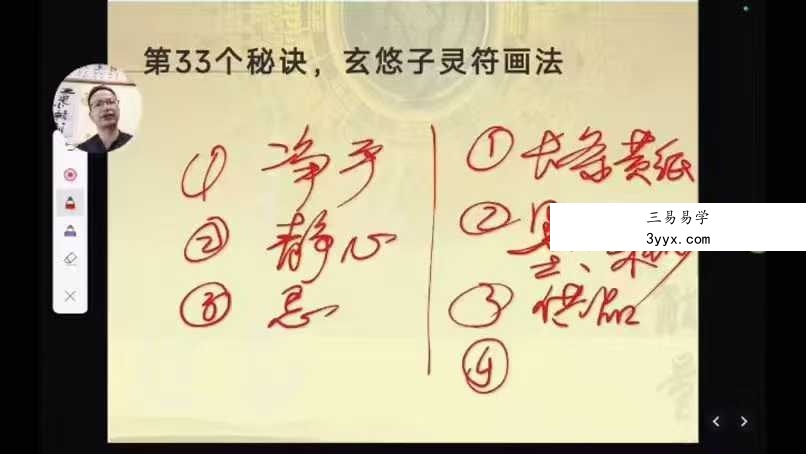 第33个秘诀，玄悠子灵符画法
① 净手
② 静心
③ 忌
① 长条黄纸
②
③ 供品
④
三易易学
3yyx.com